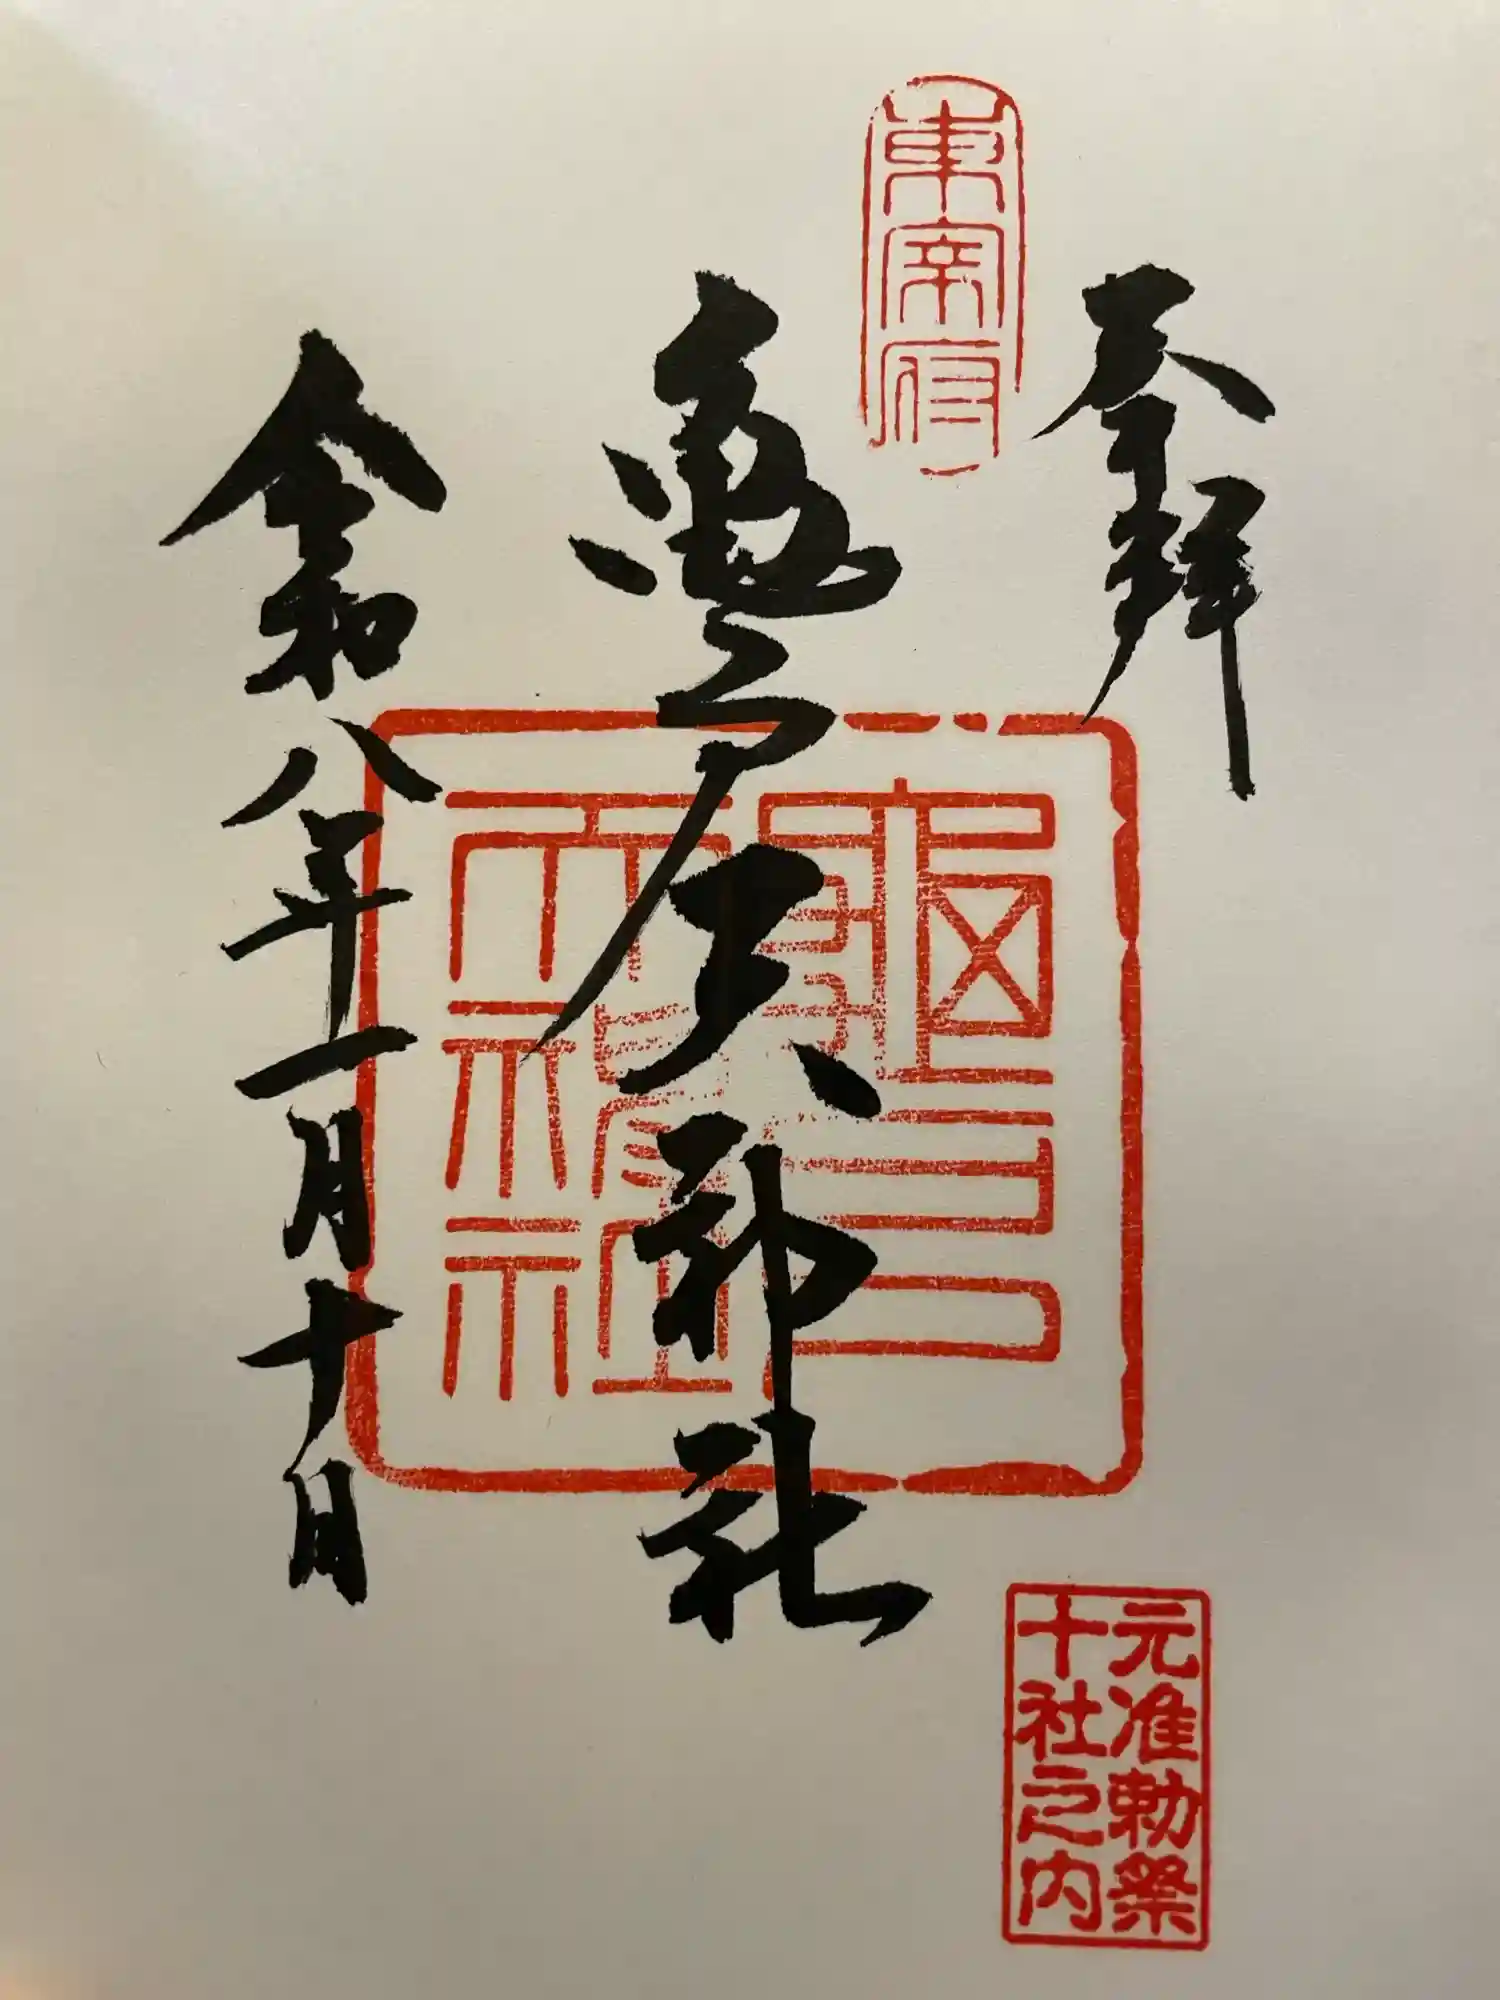 奉拝
東宰府
亀戸天神社
亀戸
天神社
令和八年一月十日
元准勅祭
十社之内